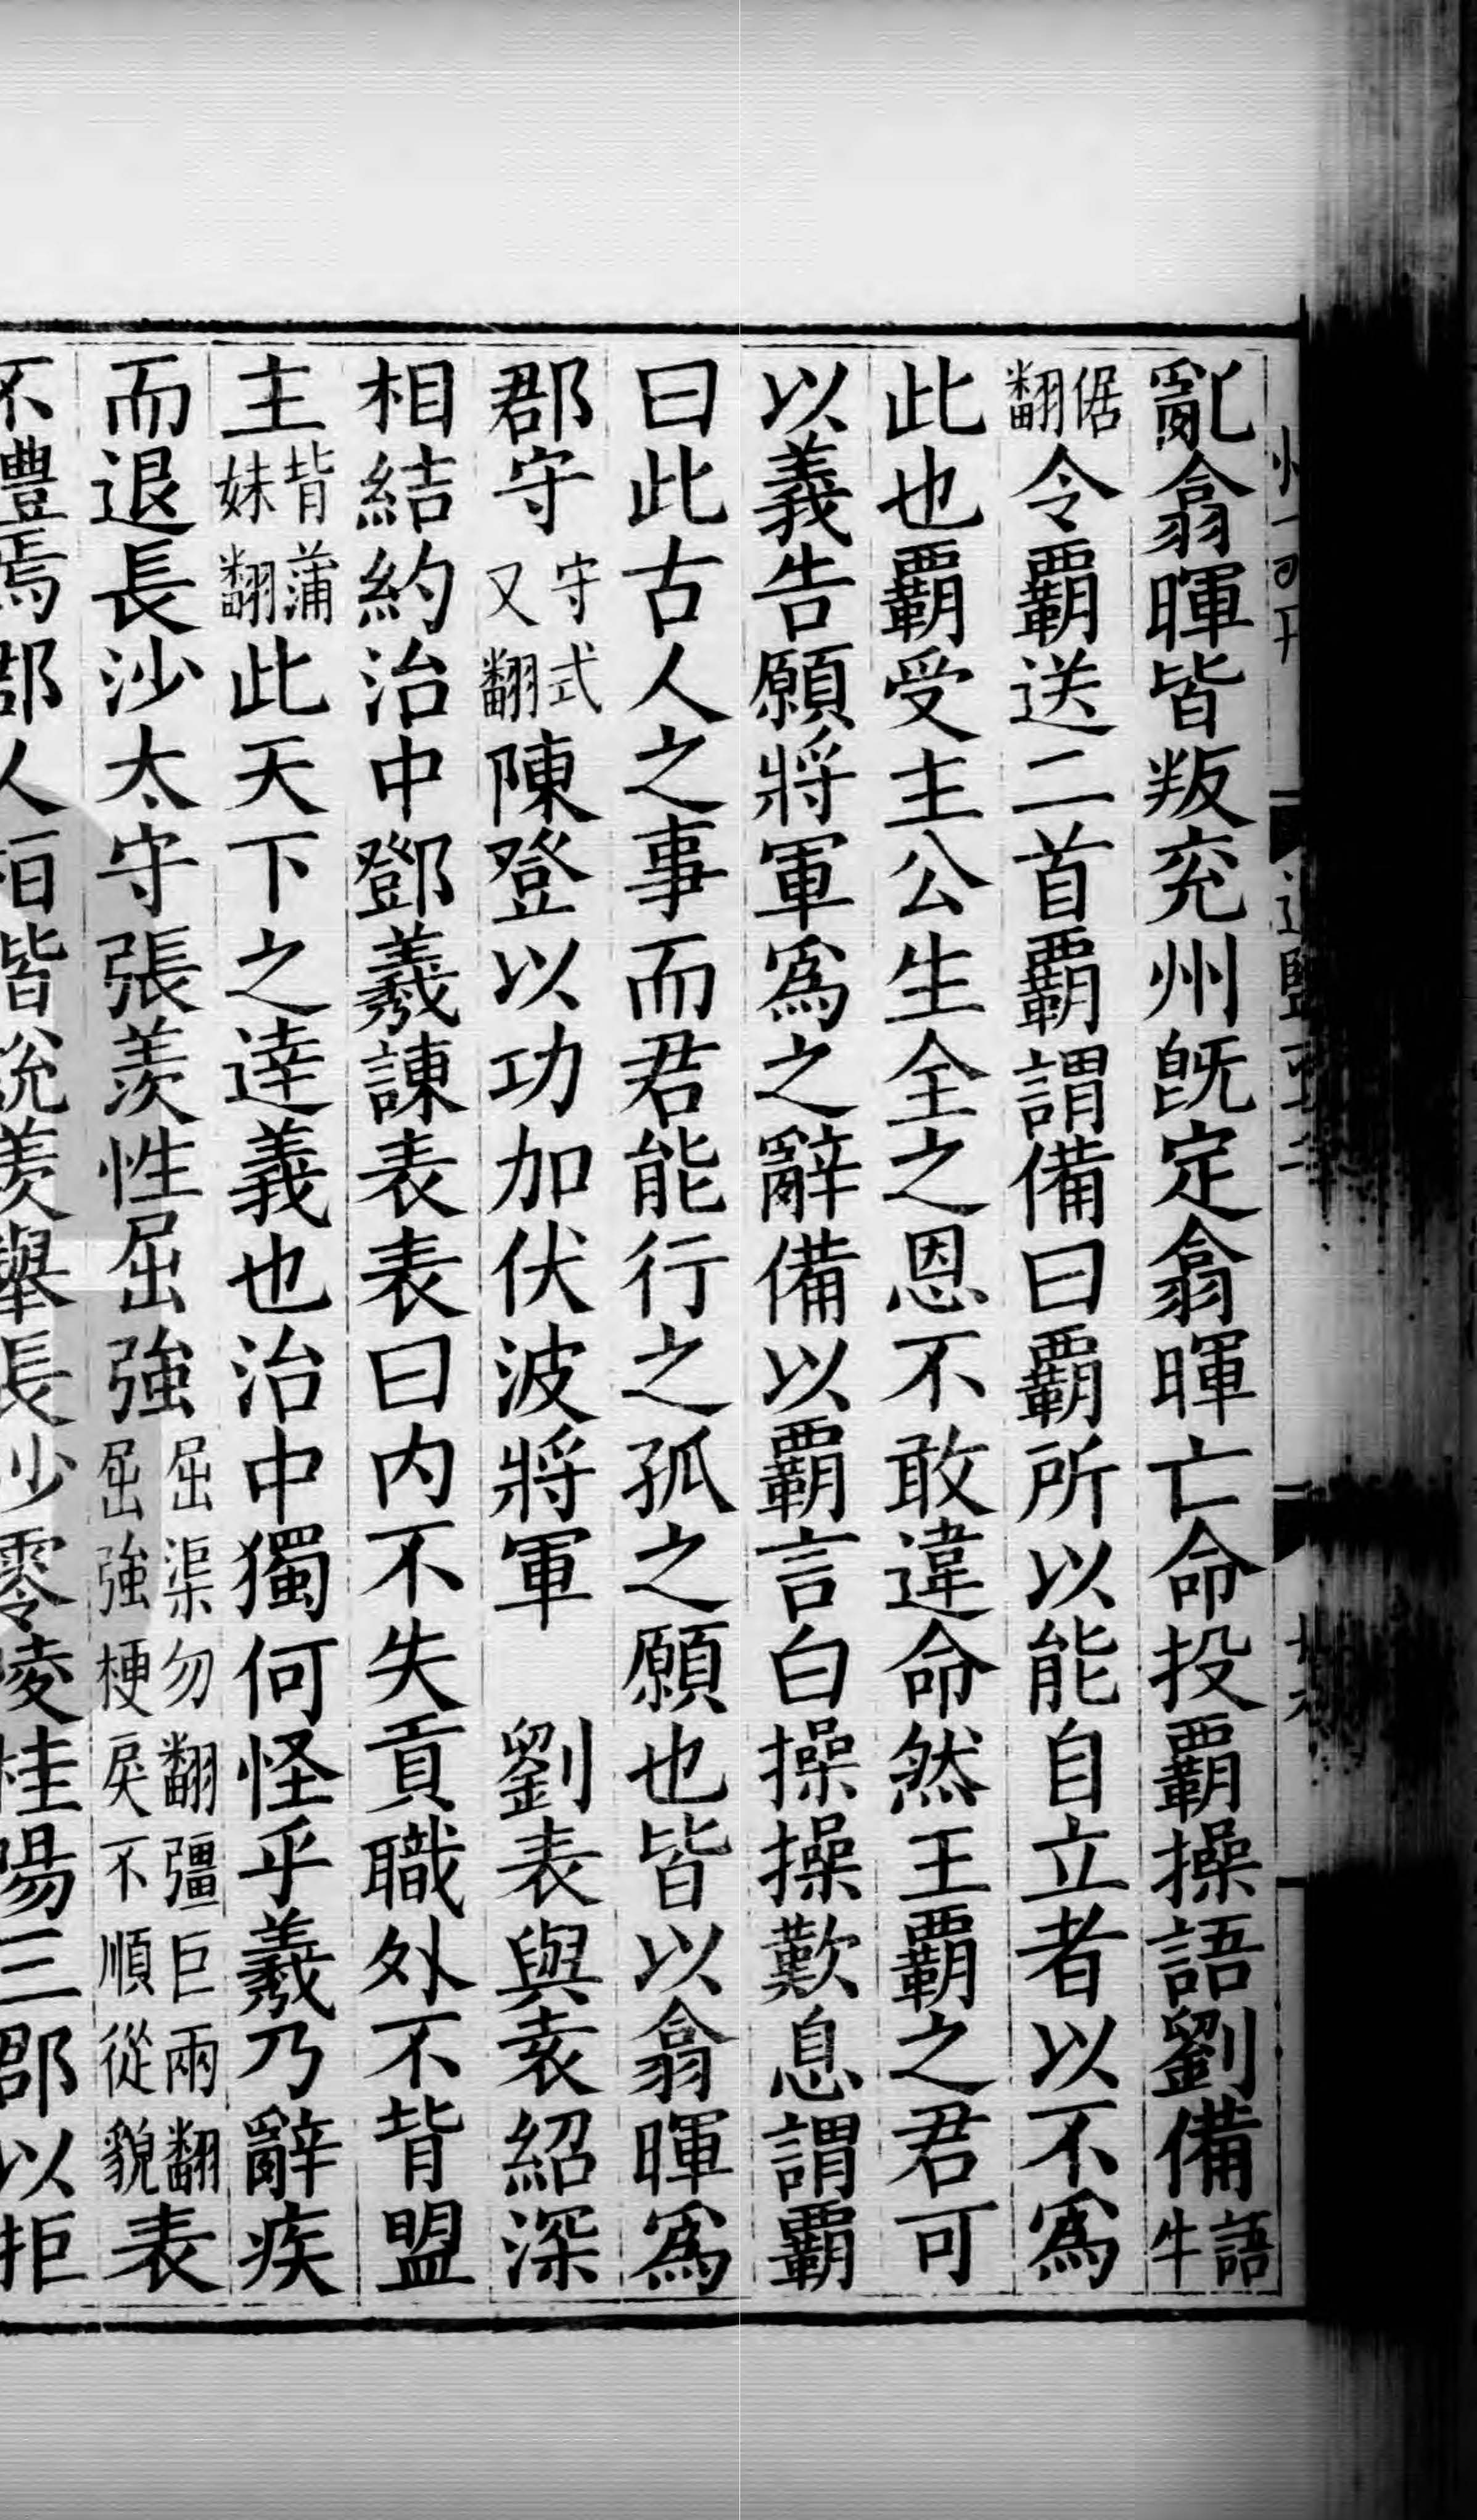 亂翕暉皆叛兖州旣定翕暉亡命投覇操語劉備語牛
倨翻令覇送二首覇謂備曰覇所以能自立者以不爲
此也覇受主公生全之恩不敢違命然王覇之君可
以義告願將軍爲之辭備以覇言白操操歎息謂覇
曰此古人之事而君能行之孤之願也皆以翕暉爲
郡守守式又翻陳登以功加伏波將軍　劉表與袁紹深
相結約治中鄧羲諫表表曰内不失貢職外不背盟
主背蒲妹翻此天下之達義也治中獨何怪乎羲乃辭疾
而退長沙太守張羨性屈強屈渠勿翻彊巨兩翻屈強梗戾不順從貌表
不豐焉郡人桓皆說羨舉長沙零陵桂陽三郡以拒